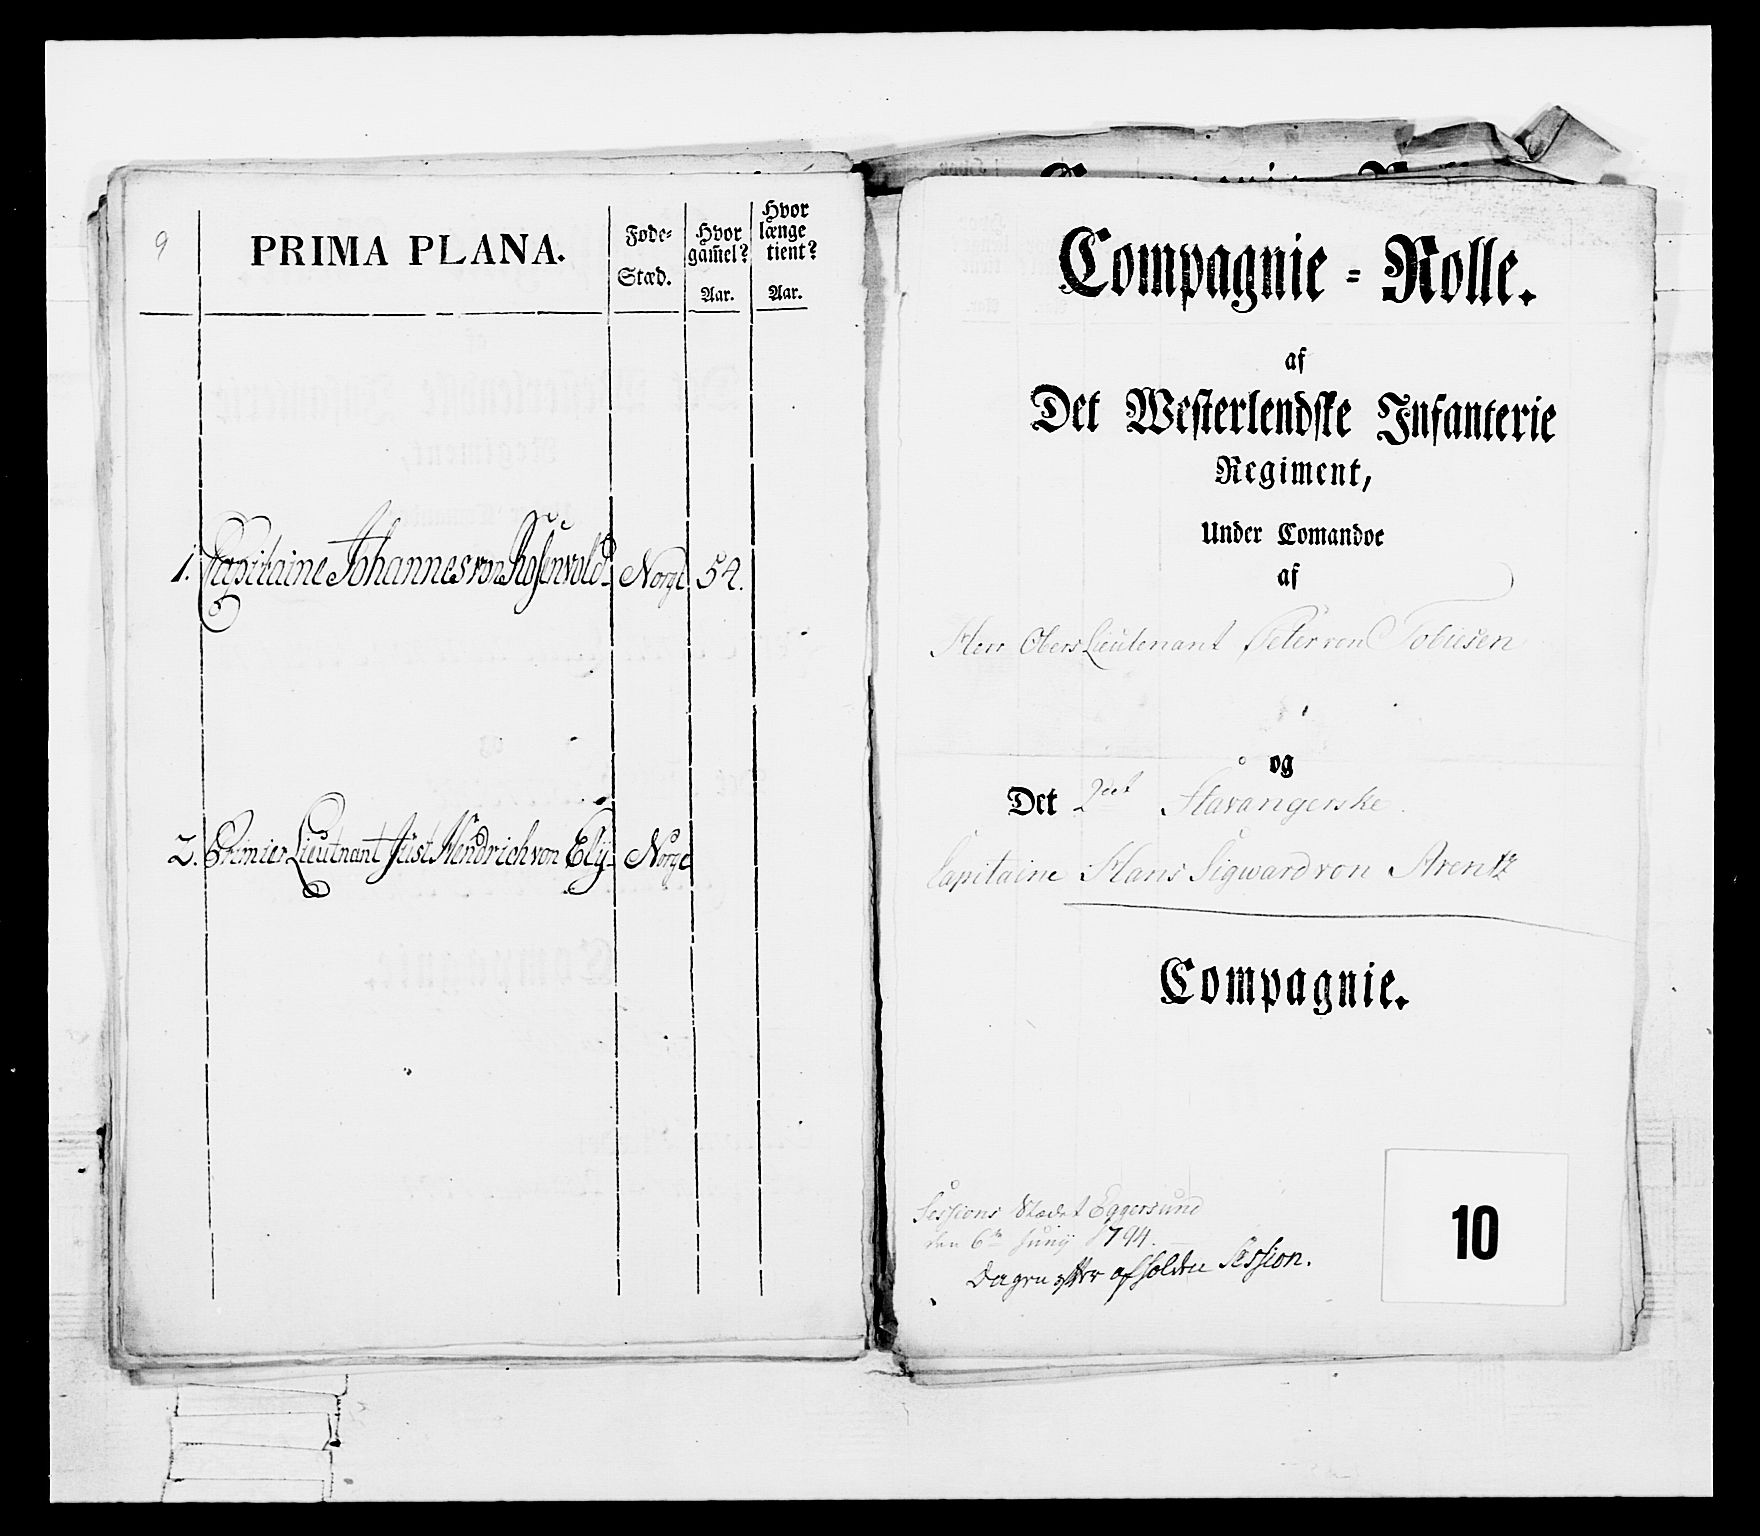 9
PRIMA PLANA.
Føde-
Stæd.
Hvor
gam̄el?
Aar.
Hvor
længe
tient?
Aar.
1. Capitaine Johannes von Rosenvold Norge 54.
2. Premier Lieutnant Just Hendrich von Ely Norge
Compagnie-Rolle.
af
Det Westerlendske Infanterie
Regiment,
Under Comandoe
af
Herr Obers Lieutenant Peter von Tobiesen
og
Det 2det Stavangerske
Capitaine Hans Sigward von Arentz
Compagnie.
Sessions Stædet Eggersund
den 6te Junij 1794.
Dagen efter afholden Session.
10